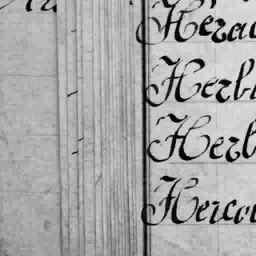 Herac
Herbi
Herb
Hercou